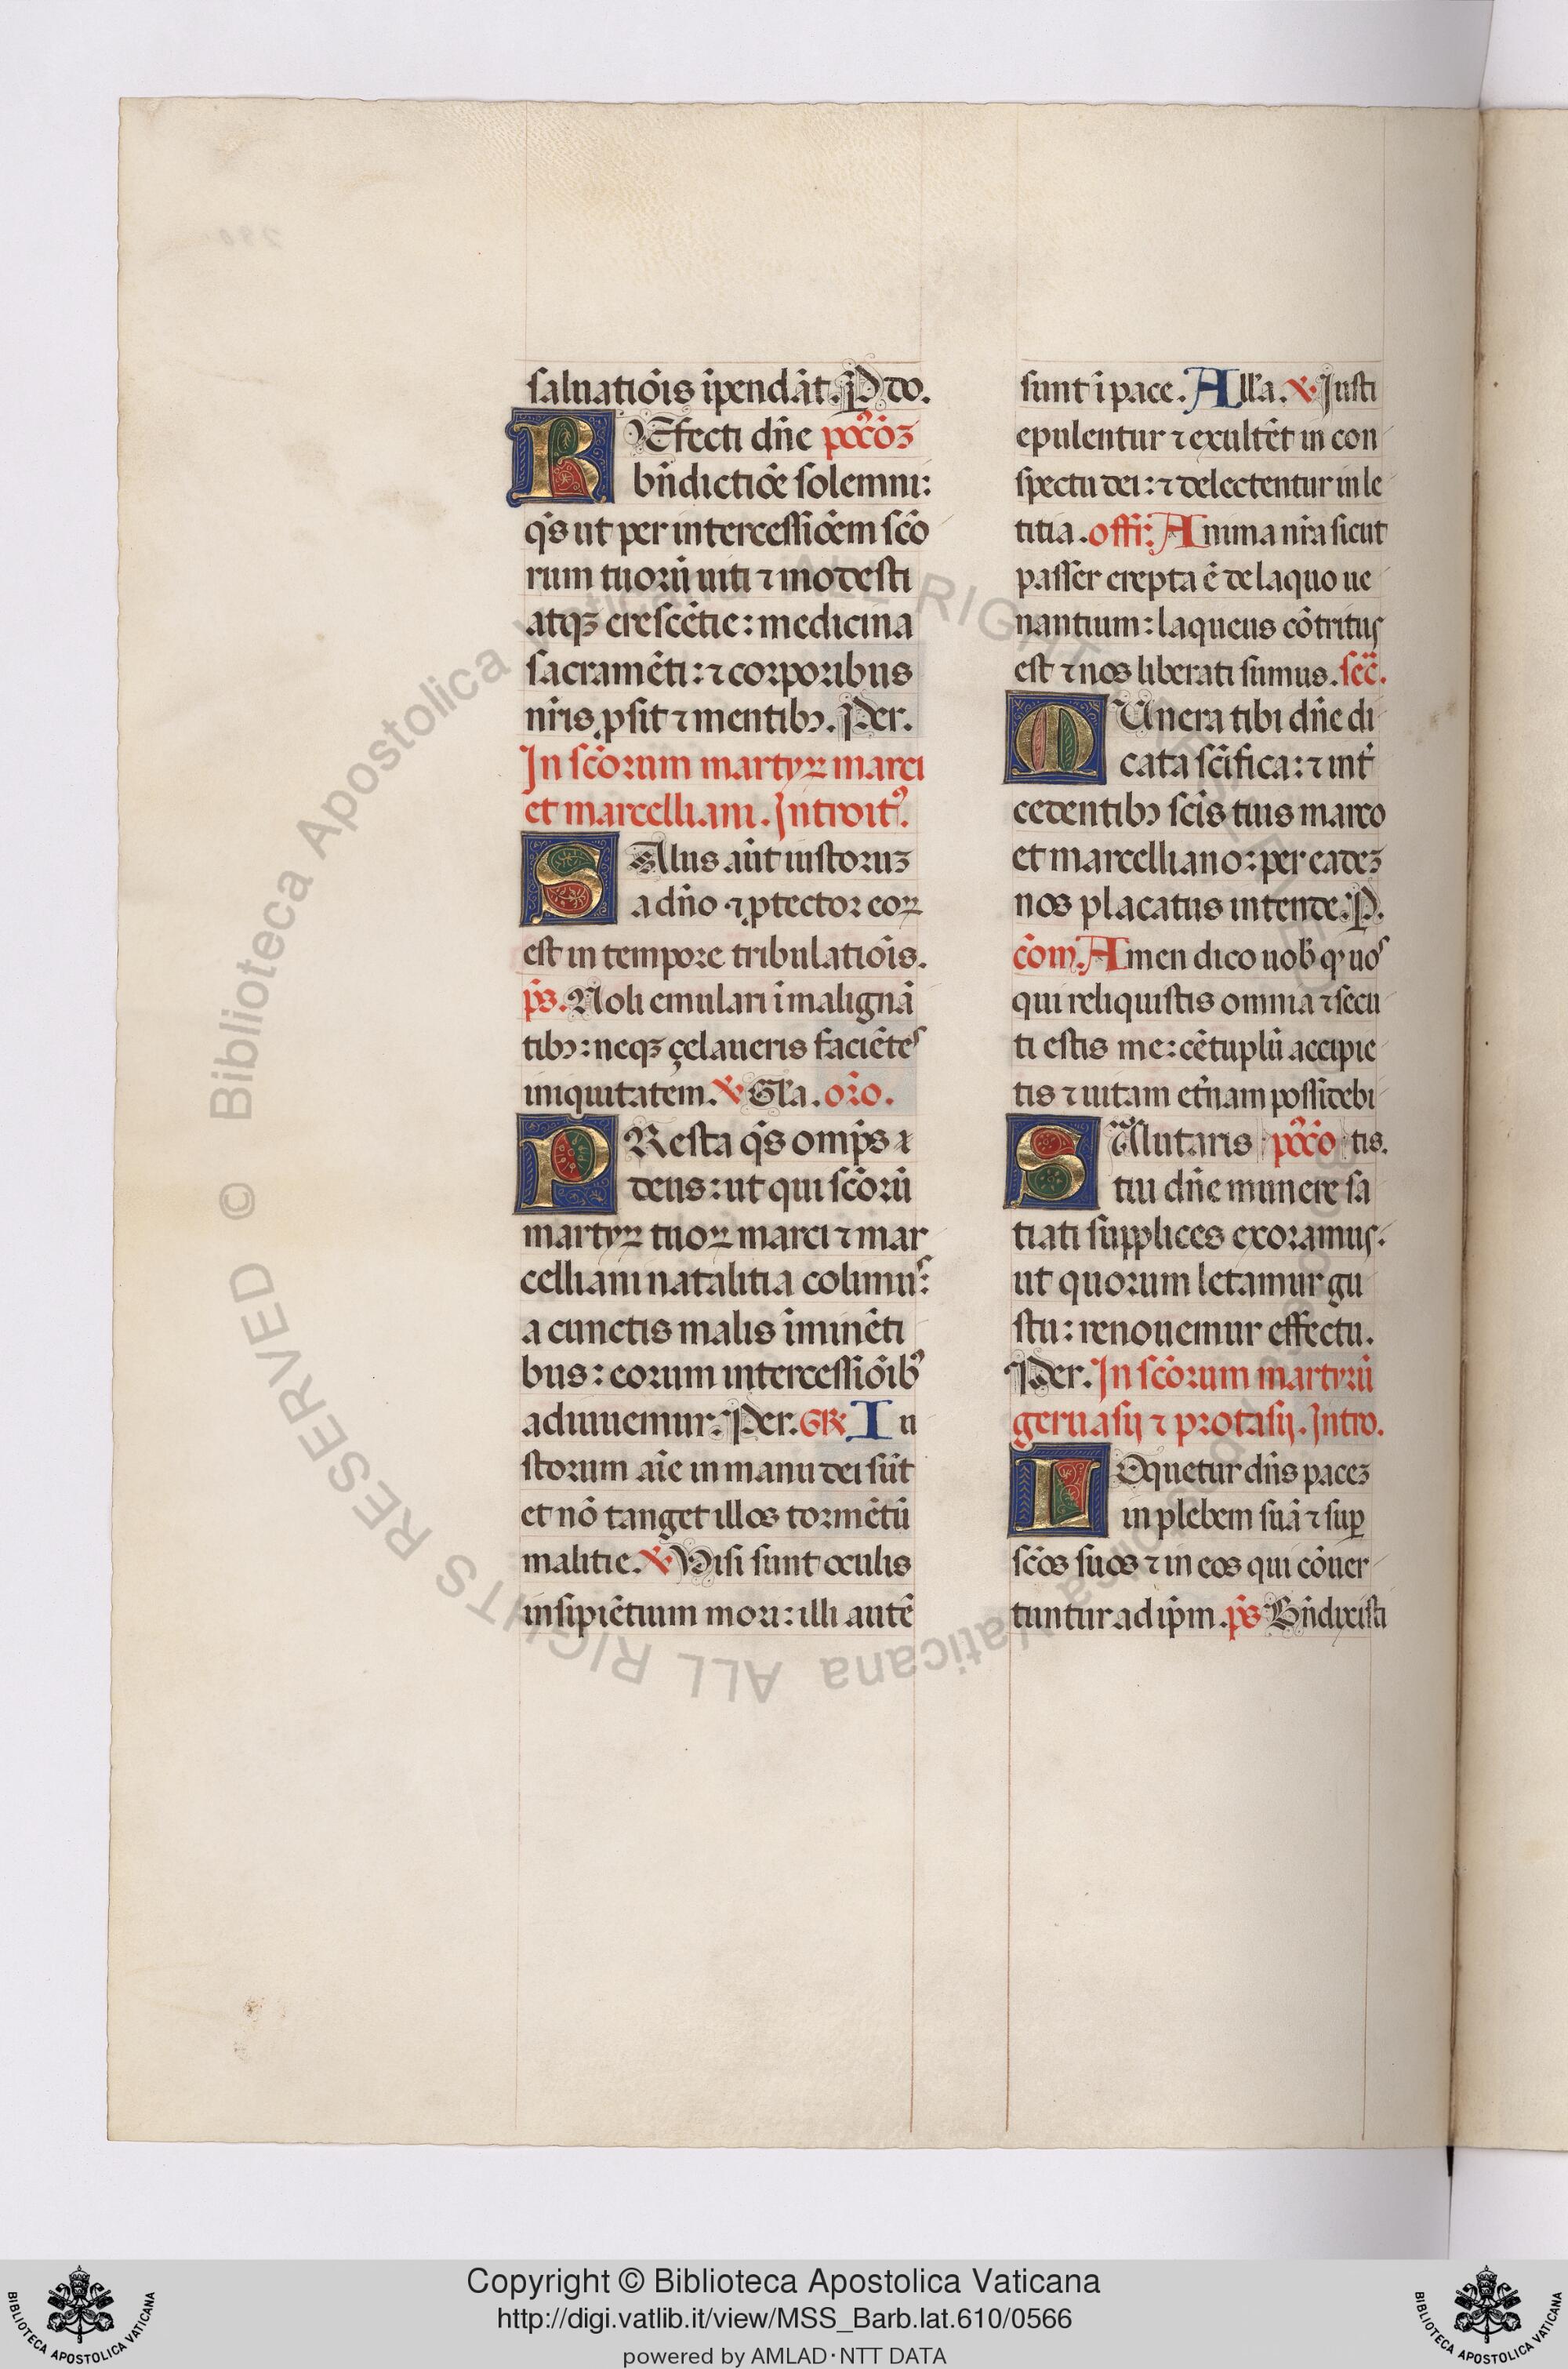 saluatiõis ĩpendãt. P do.
REfecti dñe pοc̃õʒ
bñdictiõe solemni:
q̃s ut per intercessiõem sc̃o
rum tuorũ uiti ⁊ modesti
atqꝫ crescẽtie: medicina
sacramẽti: ⁊ corporibus
nr̃is ꝓsit ⁊ mentibꝫ. Per.
In sc̃orum martyꝝ marci
et marcelliani. Introitꝰ.
SAlus aũt iustoruʒ
a dño ⁊ ꝓtector eoꝝ
est in tempore tribulatiõis.
p̃s. Noli emulari ĩ malignã
tibꝫ: neqꝫ çelaueris faciẽtes
iniquitatem. ℣ Gl̃a. or̃o.
PResta q̃s omp̃s
deus: ut qui sc̃orũ
martyꝝ tuoꝝ marci ⁊ mar
celliani natalitia colimus:
a cunctis malis ĩminẽti
bus: eorum intercessiõibꝰ
adiuuemur. Per. GR̃ Iu
storum aĩe in manu dei sũt
et nõ tanget illos tormẽtũ
malitie. ℣ Visi sunt oculis
insipiẽtium mori: illi autẽ
sunt ĩ pace. All̃a. ℣ Iusti
epulentur ⁊ exultẽt in con
spectu dei: ⁊ delectentur in le
titia. offr̃. Anima nr̃a sicut
passer erepta ẽ de laquo ue
nantium: laqueus cõtritus
est ⁊ nos liberati sumus. sec̃.
MUnera tibi dñe di
cata sc̃ifica: ⁊ int̃
cedentibꝫ sc̃is tuis marco
et marcelliano: per eadeʒ
nos placatus intende. P.
cõm. Amen dico uob̃ ꝙ uos
qui reliquistis omnia ⁊ secu
ti estis me: cẽtuplũ accipie
tis ⁊ uitam et̃nam possidebi
SAlutaris poc̃o tis.
tui dñe munere sa
tiati supplices exoramus:
ut quorum letamur gu
stu: renouemur effectu.
Per. In sc̃orum martyrũ
geruasij ⁊ protasij. Intro.
LOquetur dñs paceʒ
in plebem suã ⁊ suꝑ
sc̃os suos ⁊ in eos qui cõuer
tuntur ad ip̃m. p̃s Bñdixisti
© Biblioteca Apostolica Vaticana ALL RIGHTS RESERVED
Copyright © Biblioteca Apostolica Vaticana
http://digi.vatlib.it/view/MSS_Barb.lat.610/0566
powered by AMLAD·NTT DATA
BIBLIOTECA APOSTOLICA VATICANA
BIBLIOTECA APOSTOLICA VATICANA